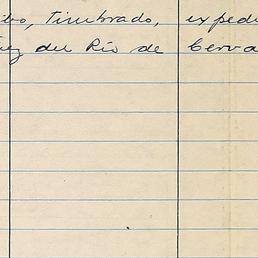 bo, Timbrado, exped
ez del Río de Cerva